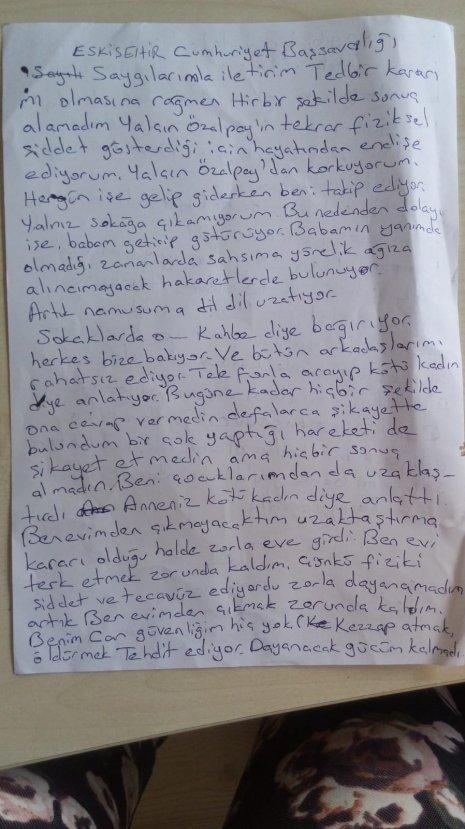 ESKİSEHİR Cumhuriyet Başsavcılığı
Saygılarımla iletirim Tedbir kararı
olmasına rağmen Hirbir şekilde sonuç
alamadım Yalçın Özalpay'ın tekrar fiziksel
şiddet gösterdiği için hayatından endişe
ediyorum. Yalçın Özalpay'dan korkuyorum.
Hergün işe gelip giderken beni takip ediyor.
Yalnız sokağa çıkamıyorum. Bu nedenden dolayı
işe, babam getirip götürüyor. Babamın yanımda
olmadığı zamanlarda şahsıma yönelik ağıza
alıncımayacak hakaretlerde bulunuyor.
Artık namusuma dil dil uzatıyor.
Sokaklarda o— Kahbe diye bağırıyor.
herkes bize bakıyor. Ve bütün arkadaşlarımı
rahatsız ediyor. Telefonla arayıp kötü kadın
diye anlatıyor. Bugüne kadar hiçbir şekilde
ona cevap vermedin defalarca şikayette
bulundum bir çok yaptığı hareketi de
şikayet etmedin ama hiçbir sonuç
almadın. Beni çocuklarımdan da uzaklaş-
tırdı Anneniz kötü kadın diye anlattı
Ben evimden çıkmayacaktım uzaktaştırma
kararı olduğu halde zorla eve girdi. Ben evi
terk etmek zorunda kaldım. Çünkü fiziki
şiddet ve tecavüz ediyordu zorla dayanamadım
artık Ben evimden çıkmak zorunda kaldım.
Benim Can güvenliğim hiç yok. Kezzap atmak,
öldürmek Tehdit ediyor. Dayanacak gücüm kalmadı